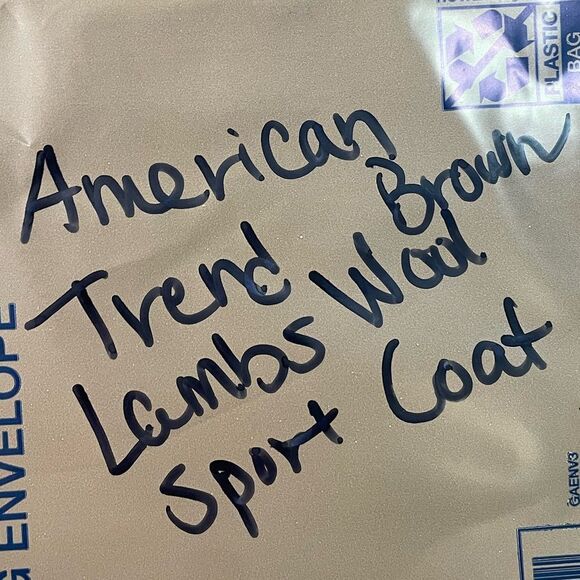 PLASTIC
BAG
American
Brown
Trend
Wool
Lambs
Sport Coat
G ENVELOPE
GAENV3